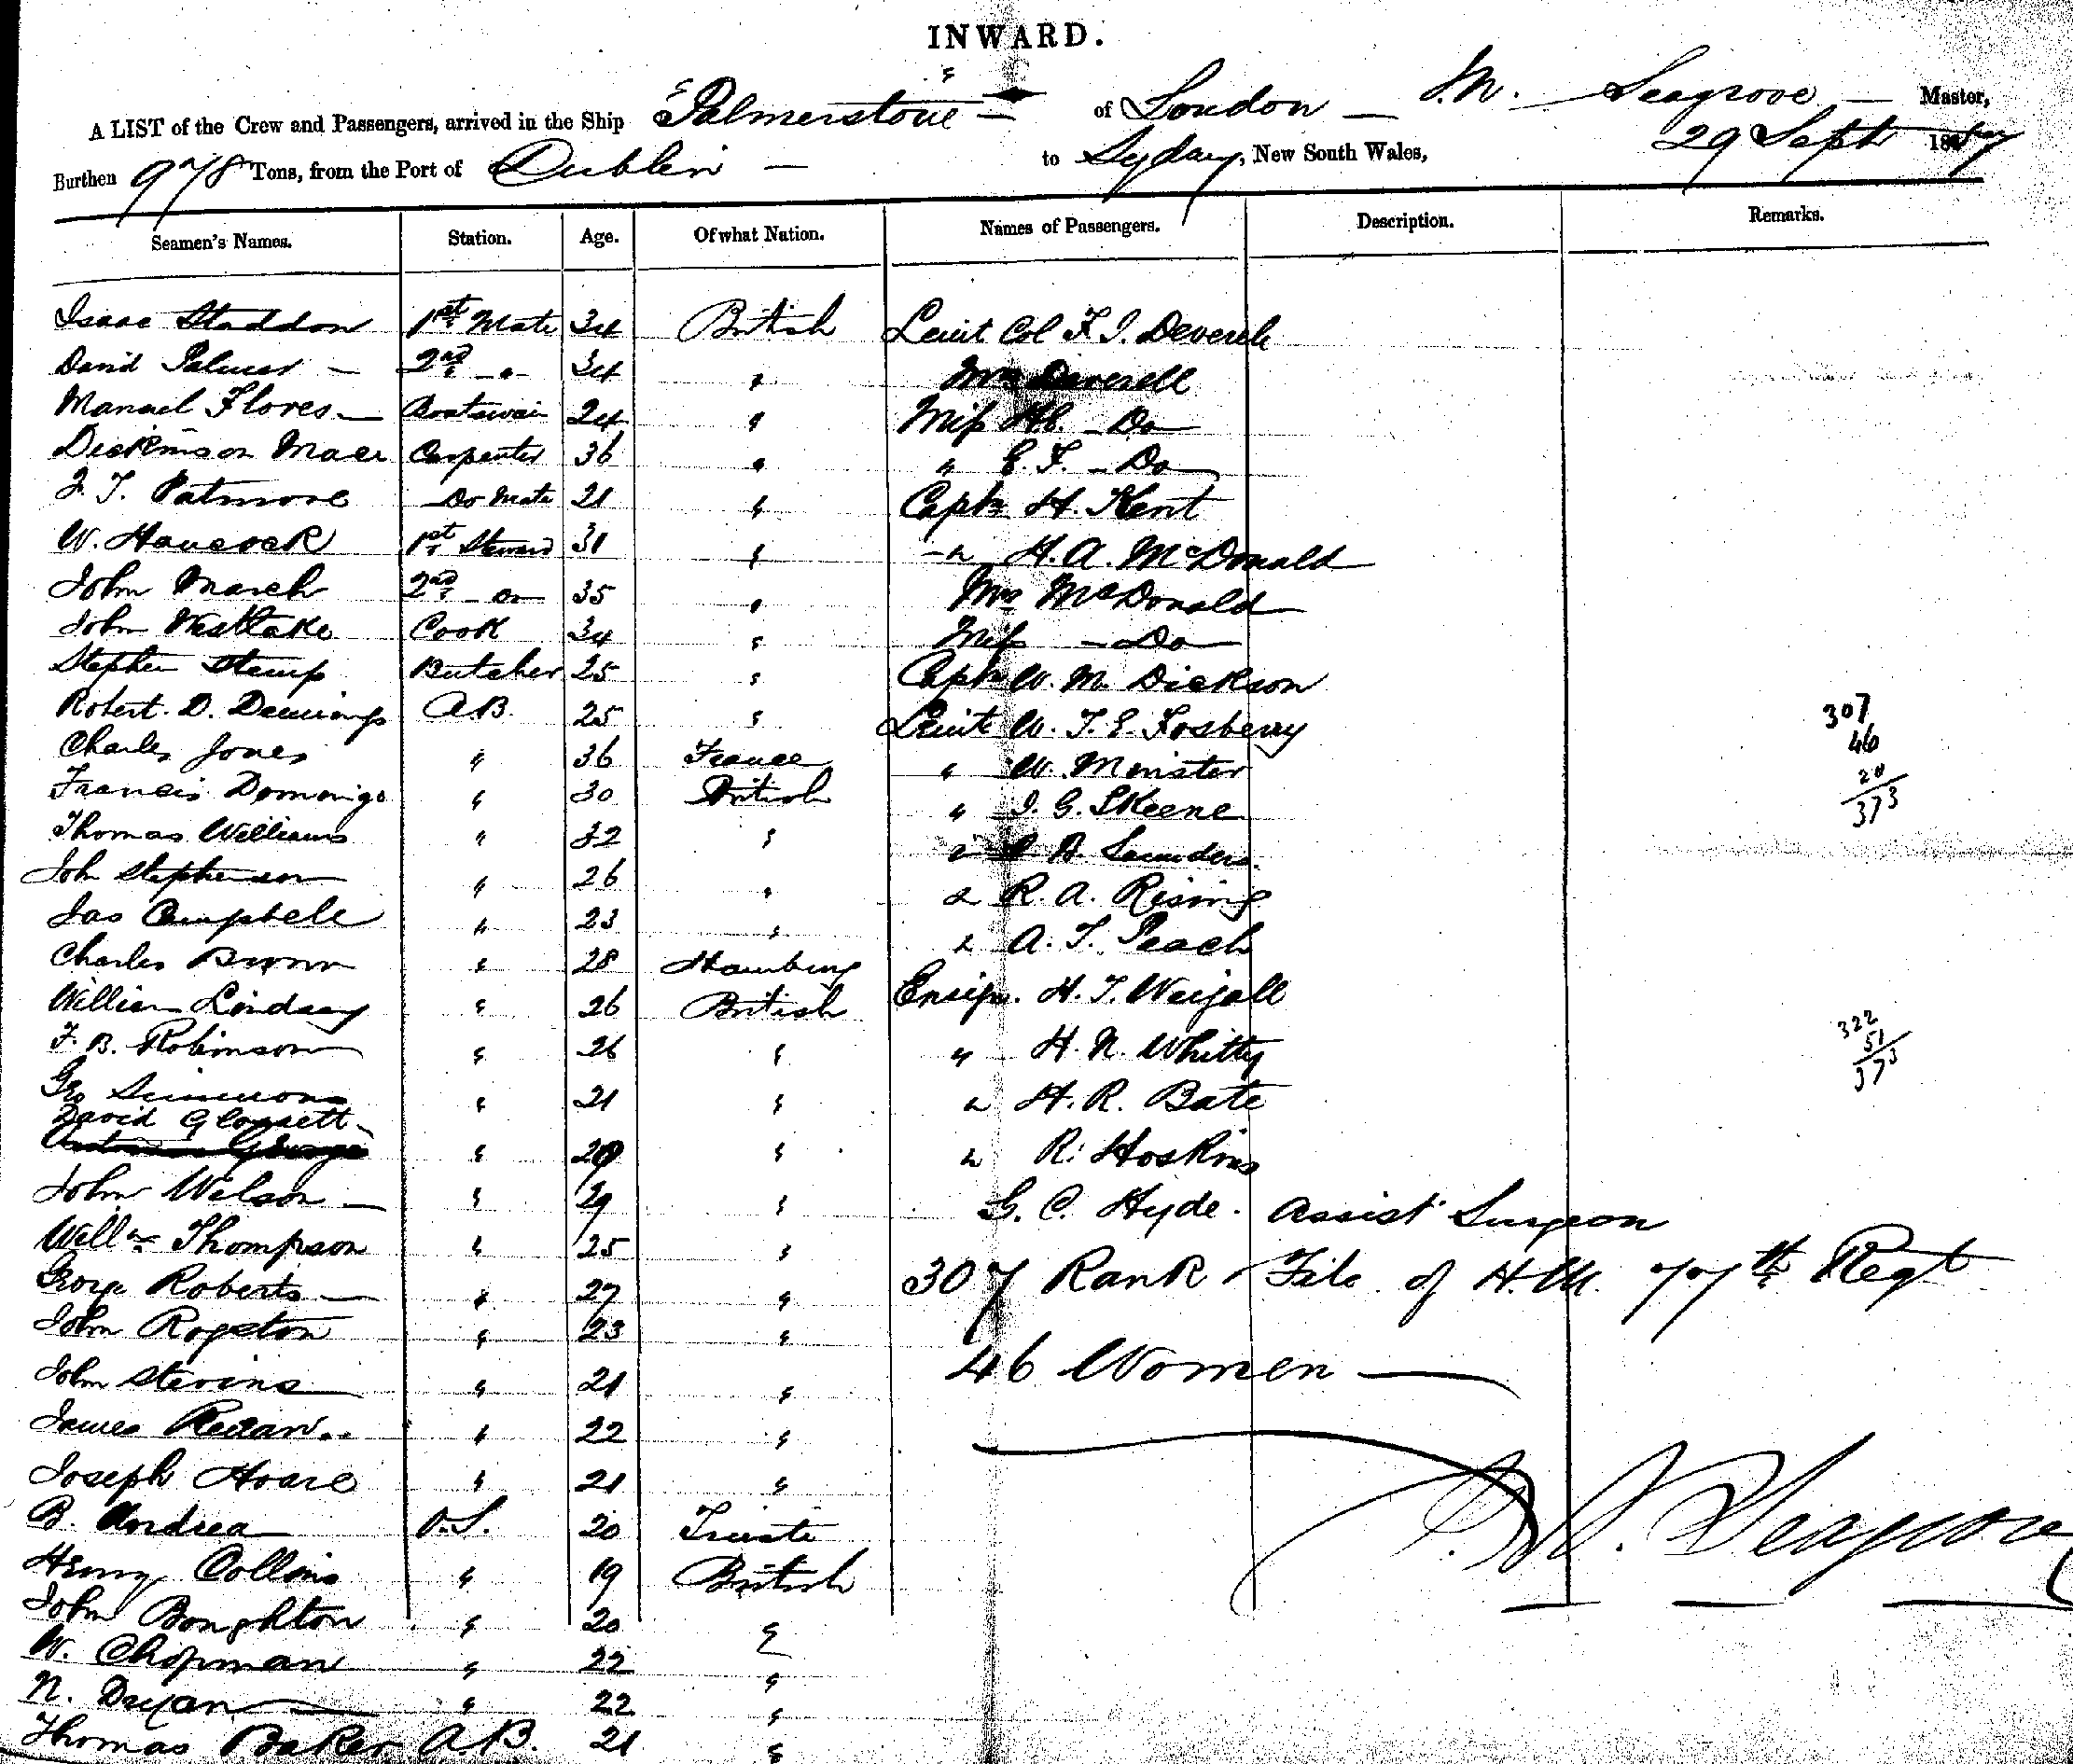 INWARD.
A LIST of the Crew and Passengers, arrived in the Ship Palmerstone of London — M. Seagrove — Master,
Burthen 978 Tons, from the Port of Dublin — to Sydney, New South Wales, 29 Sept 1857
Seamen's Names. Station. Age. Of what Nation. Names of Passengers. Description. Remarks.
Isaac Staddon 1st Mate 34 British Leiut Col F. I. Deverell
David Palmer — 2nd - " - 34 " Mrs Deverell
Manuel Flores — Boatswain 24 " Miss — Do
Dickinson Mace Carpenter 36 " " E. F. — Do
J. T. Patmore Do Mate 21 " Captn H. Kent
W. Hancock 1st Steward 31 " " H. A. McDonald
John March 2nd - Do 35 " Mrs McDonald
John Westlake Cook 34 " Miss — Do
Stephen Stamp Butcher 25 " Captn W. M. Dickson
Robert D. A.B. 25 " Leiut W. T. E. Fosbery 307
Charles Jones " 36 France " W. Monister 46
Francis Domingo 30 British " I. G. Skeene 20
Thomas Williams " 32 " " A. Saunders 373
Joh Stephenson " 26 " " R. A. Rising
Jas Campbell " 23 " " A. T. Peach
Charles Brown " 28 Hamburg Ensign. H. T. Weigall
William Lindsay " 26 British " H. N. Whitty 322
F. B. Robinson " 26 " " H. R. Bate 51
Geo Simmons " 21 " " R. Hoskins 373
David Glossett " 29 "
John Wilson — " 29 " G. C. Hyde. Assist Surgeon
Willm Thompson " 25 " 307 Rank & File of H.M. 77th Regt
George Roberts — " 27 "
John Rogeton " 23 " 46 Women —
John Stevens " 21 "
James Regan " 22 "
Joseph Hoare " 21 " M. Seagrove
B. Andrea O.S. 20 Trieste
Henry Collins " 19 British
John Boughton " 20 "
W. Chapman " 22 "
N. Dryan — " 22 "
Thomas Baker A.B. 21 "